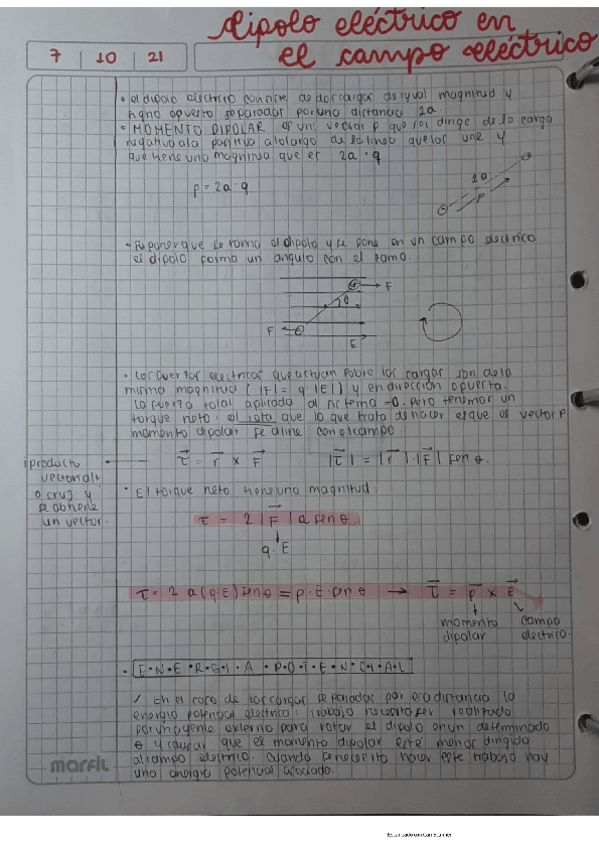 dipolo eléctrico en
el campo eléctrico
7 | 10 | 21
• el dipolo eléctrico consiste de dos cargas de igual magnitud y
signo opuesto separadas por una distancia 2a.
• MOMENTO DIPOLAR es un vector p que se dirige de la carga
negativa a la positiva a lo largo de la línea que los une y
que tiene una magnitud que es 2a · q
p = 2a · q
2a
p
• Suponer que se toma al dipolo y se pone en un campo electrico
el dipolo forma un angulo con el
F
θ
F
E
• Las fuerzas electricas que actuan sobre las cargas son de la
misma magnitud ( |F| = q |E| ) y en dirección opuesta.
La fuerza total aplicada al sistema = 0. Pero tenemos un
torque neto = el rota que lo que trata de hacer es que el vector p
momento dipolar se aline con el campo
τ = r x F |τ| = |r| · |F| sen θ.
producto
vectorial
o cruz y
se obtiene
un vector.
• El torque neto tiene una magnitud.
τ = 2 |F| a sen θ
q · E
τ = 2 a (q·E) sen θ = p · E · sen θ → τ = p x E
momento
dipolar
campo
electrico.
• E·N·E·R·G·I·A · P·O·T·E·N·C·I·A·L
En el caso de las cargas separadas por esa distancia la
energia potencial electrica: trabajo necesita ser realizado
por un agente externo para rotar el dipolo en un determinado
θ y causar que el momento dipolar esté menos dirigido
al campo electrico. Cuando se necesita hacer este trabajo hay
una energia potencial asociado.
marfil
Escaneado con CamScanner